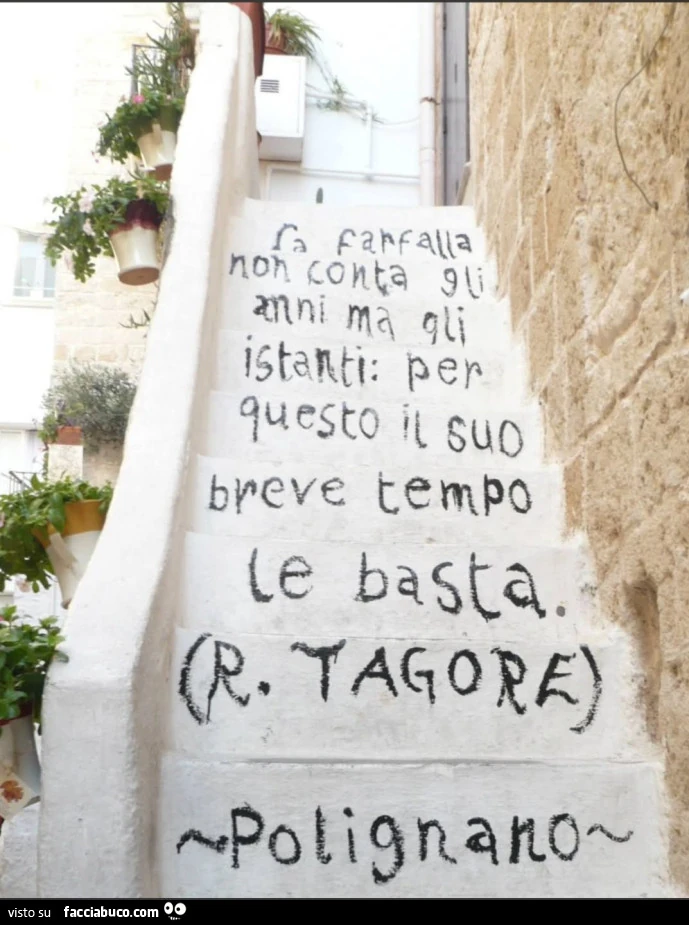 La farfalla
non conta gli
anni ma gli
istanti: per
questo il suo
breve tempo
le basta.
(R. TAGORE)
~Polignano~
visto su facciabuco.com